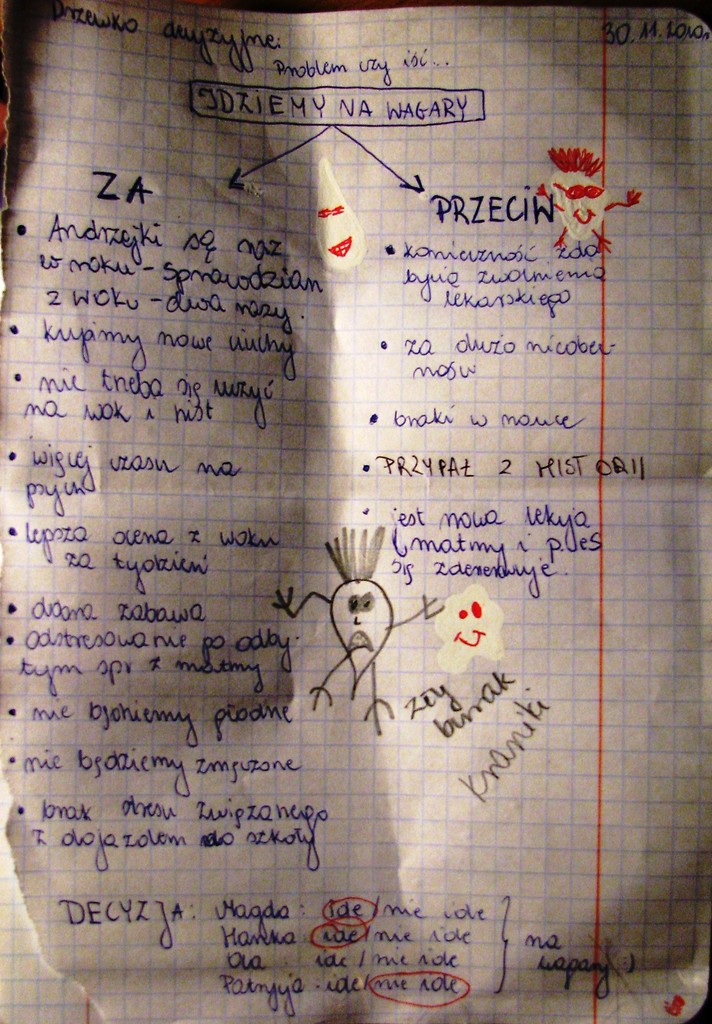 Drzewko decyzyjne:
30.11.2010r
Problem czy iść...
IDZIEMY NA WAGARY
ZA
• Andrzejki są raz
w roku - sprawdzian
z woku - dwa razy.
• kupimy nowe ciuchy
• nie trzeba się uczyć
na wok i hist
• więcej czasu na
• lepsza ocena z woku
za tydzień
• dobra zabawa
• odstresowanie po odby-
tym spr z matmy
• nie będziemy głodne
• nie będziemy zmęczone
• brak stresu związanego
z dojazdem do szkoły
PRZECIW
• konieczność zdo
bycia zwolnienia
lekarskiego
• za dużo nieobec-
ności
• braki w nauce
• PRZYPAŁ Z HISTORII
• jest nowa lekcja
z matmy i
się zdenerwuje.
zły
burak
Kraniki
DECYZJA: Magda: idę/nie idę
Hanka idę/nie idę
Ola idę/nie idę
Patrycja idę/nie idę
na
wagary :)